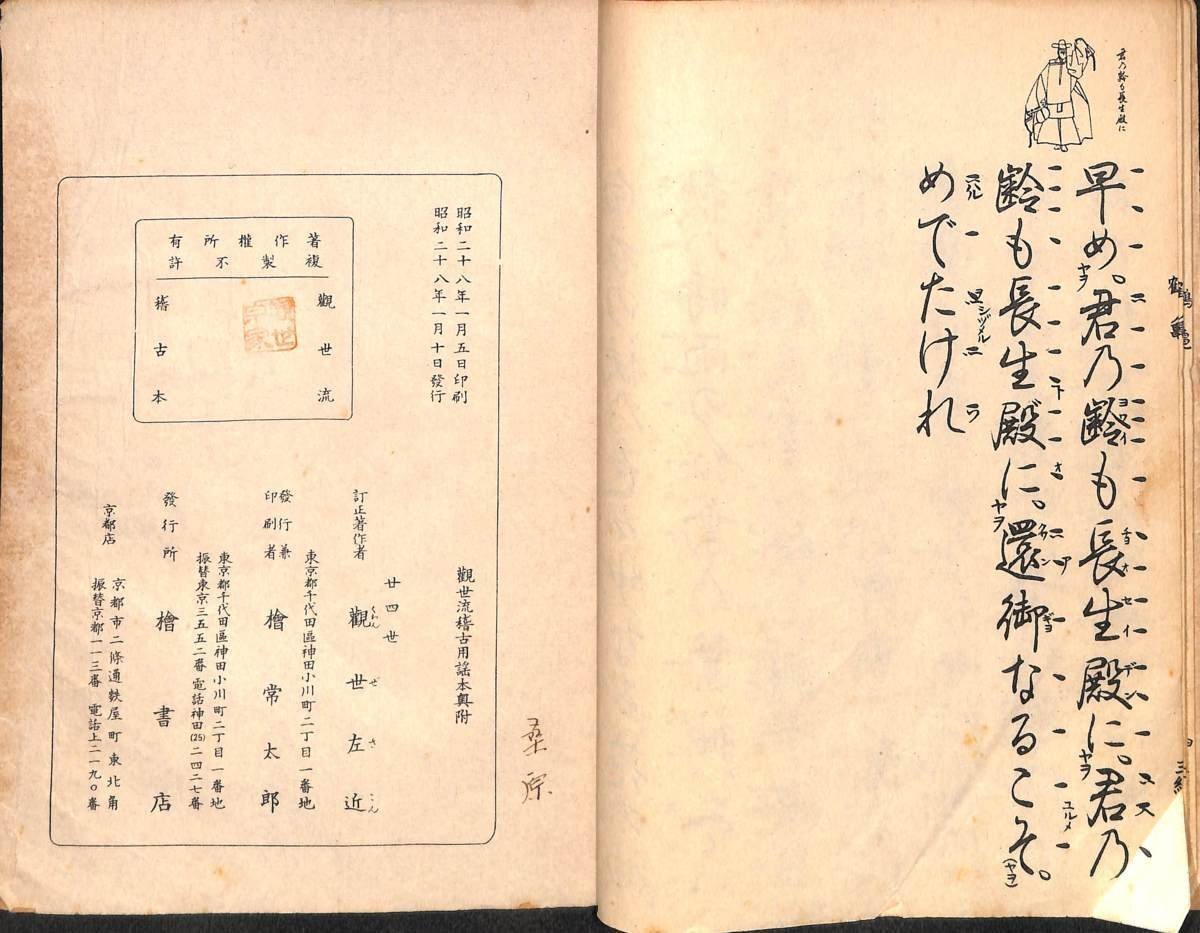 君乃齢も長生殿に
早め。君乃齢も長生殿に。君乃
齢も長生殿に。還御なるこそ。
めでたけれ
鶴亀
昭和二十八年一月五日印刷
昭和二十八年一月十日發行
著作權所有
複製不許
觀世流
稽古本
觀世流稽古用謠本奥附
訂正著作者
廿四世
觀世左近
くわんぜさこん
東京都千代田區神田小川町二丁目一番地
發行兼
印刷者
檜常太郎
東京都千代田區神田小川町二丁目一番地
振替東京三五五二番 電話神田(25)二四二七番
發行所
檜書店
京都店
京都市二條通麩屋町東北角
振替京都一一三番 電話上二一九〇番
桑原